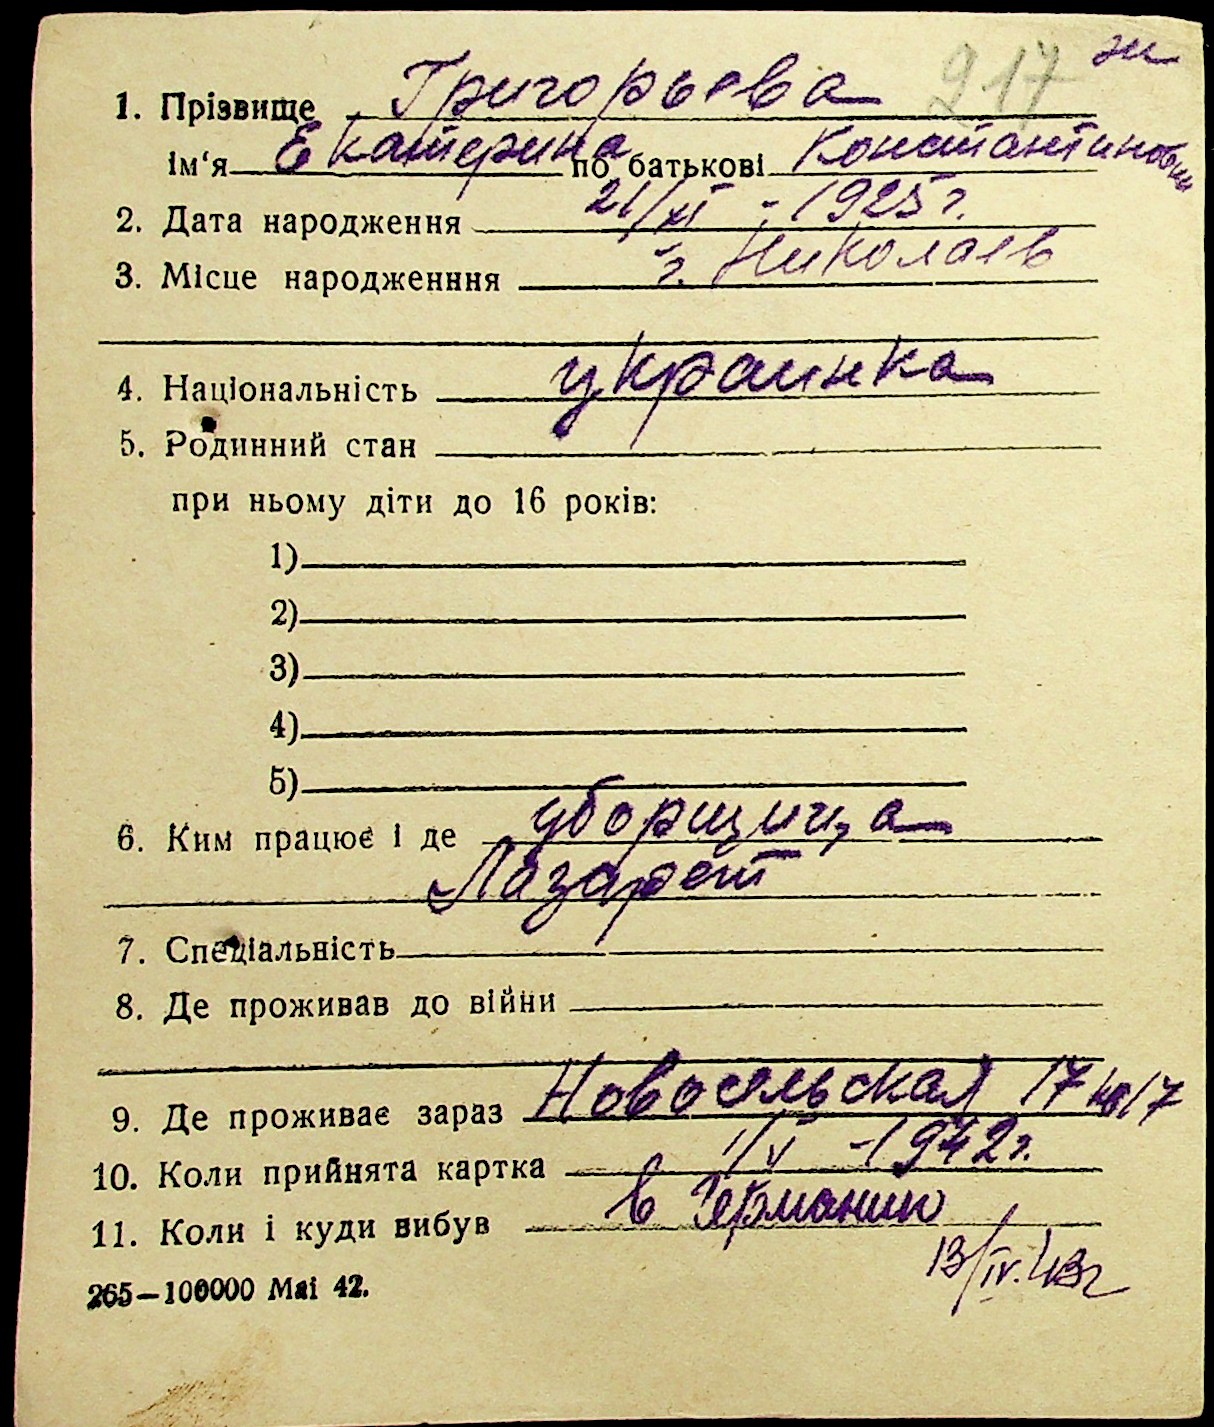 217 зи
1. Прізвище Григорьева
ім‘я Екатерина по батькові Константиновн
2. Дата народження 21/XI - 1925 г.
3. Місце народженння г. Николаев
4. Національність украинка
5. Родинний стан
при ньому діти до 16 років:
1)
2)
3)
4)
5)
6. Ким працює і де уборщица
Лазарет
7. Спеціальність
8. Де проживав до війни
9. Де проживає зараз Новосельская 17 кв 17
10. Коли прийнята картка 1/V - 1942 г.
11. Коли і куди вибув в Германию
13/IV. 43 г
265—100000 Маі 42.